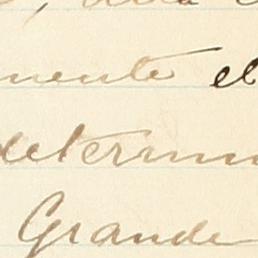 mente el
determin
Grande